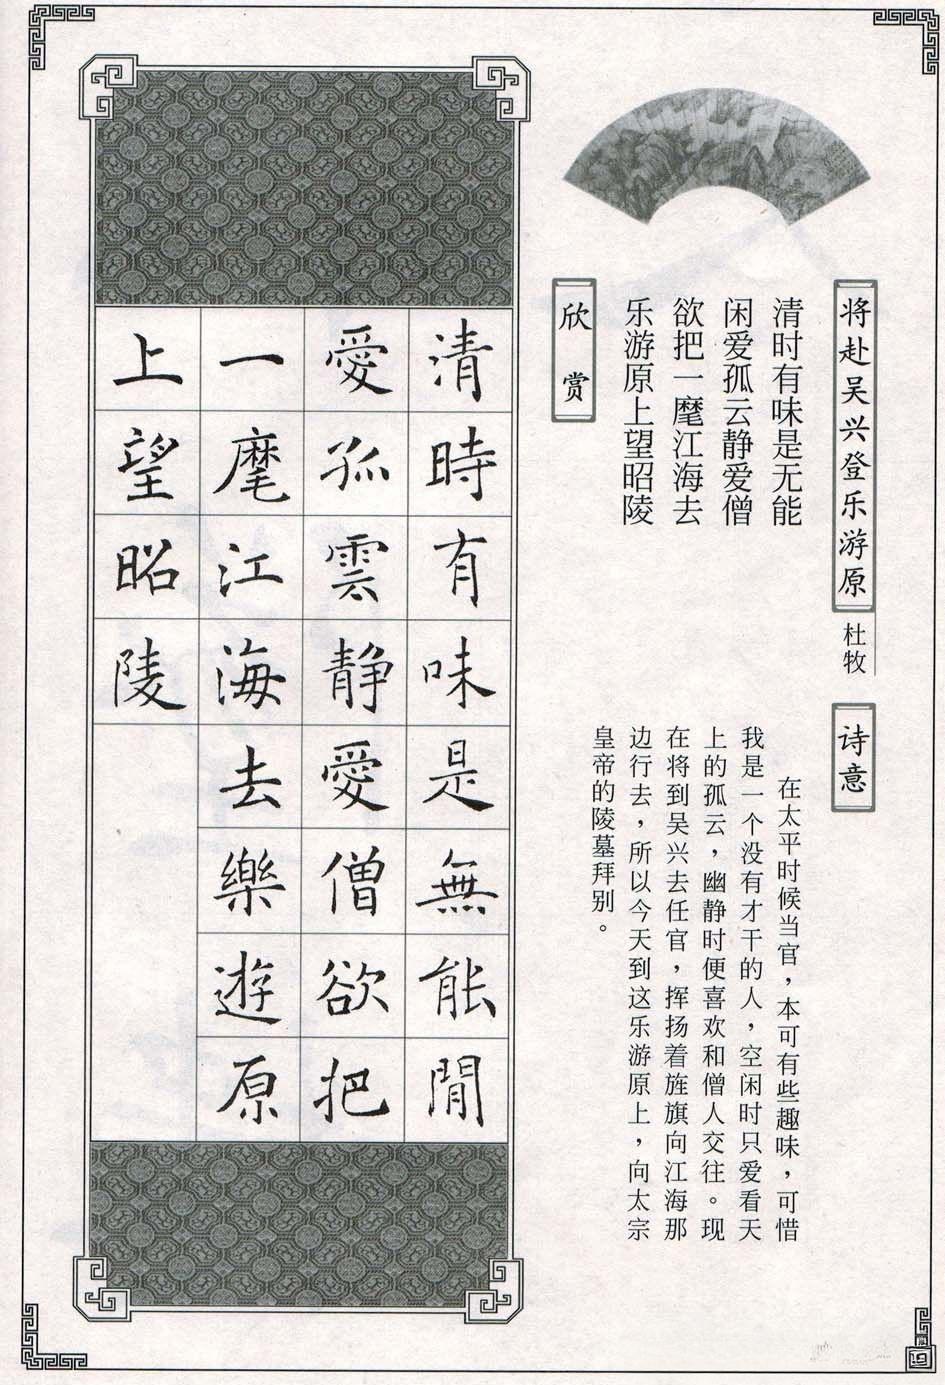 将赴吴兴登乐游原
杜牧
清时有味是无能
闲爱孤云静爱僧
欲把一麾江海去
乐游原上望昭陵
诗意
在太平时候当官，本可有些趣味，可惜
我是一个没有才干的人，空闲时只爱看天
上的孤云，幽静时便喜欢和僧人交往。现
在将到吴兴去任官，挥扬着旌旗向江海那
边行去，所以今天到这乐游原上，向太宗
皇帝的陵墓拜别。
欣赏
清時有味是無能閒
愛孤雲静愛僧欲把
一麾江海去樂遊原
上望昭陵